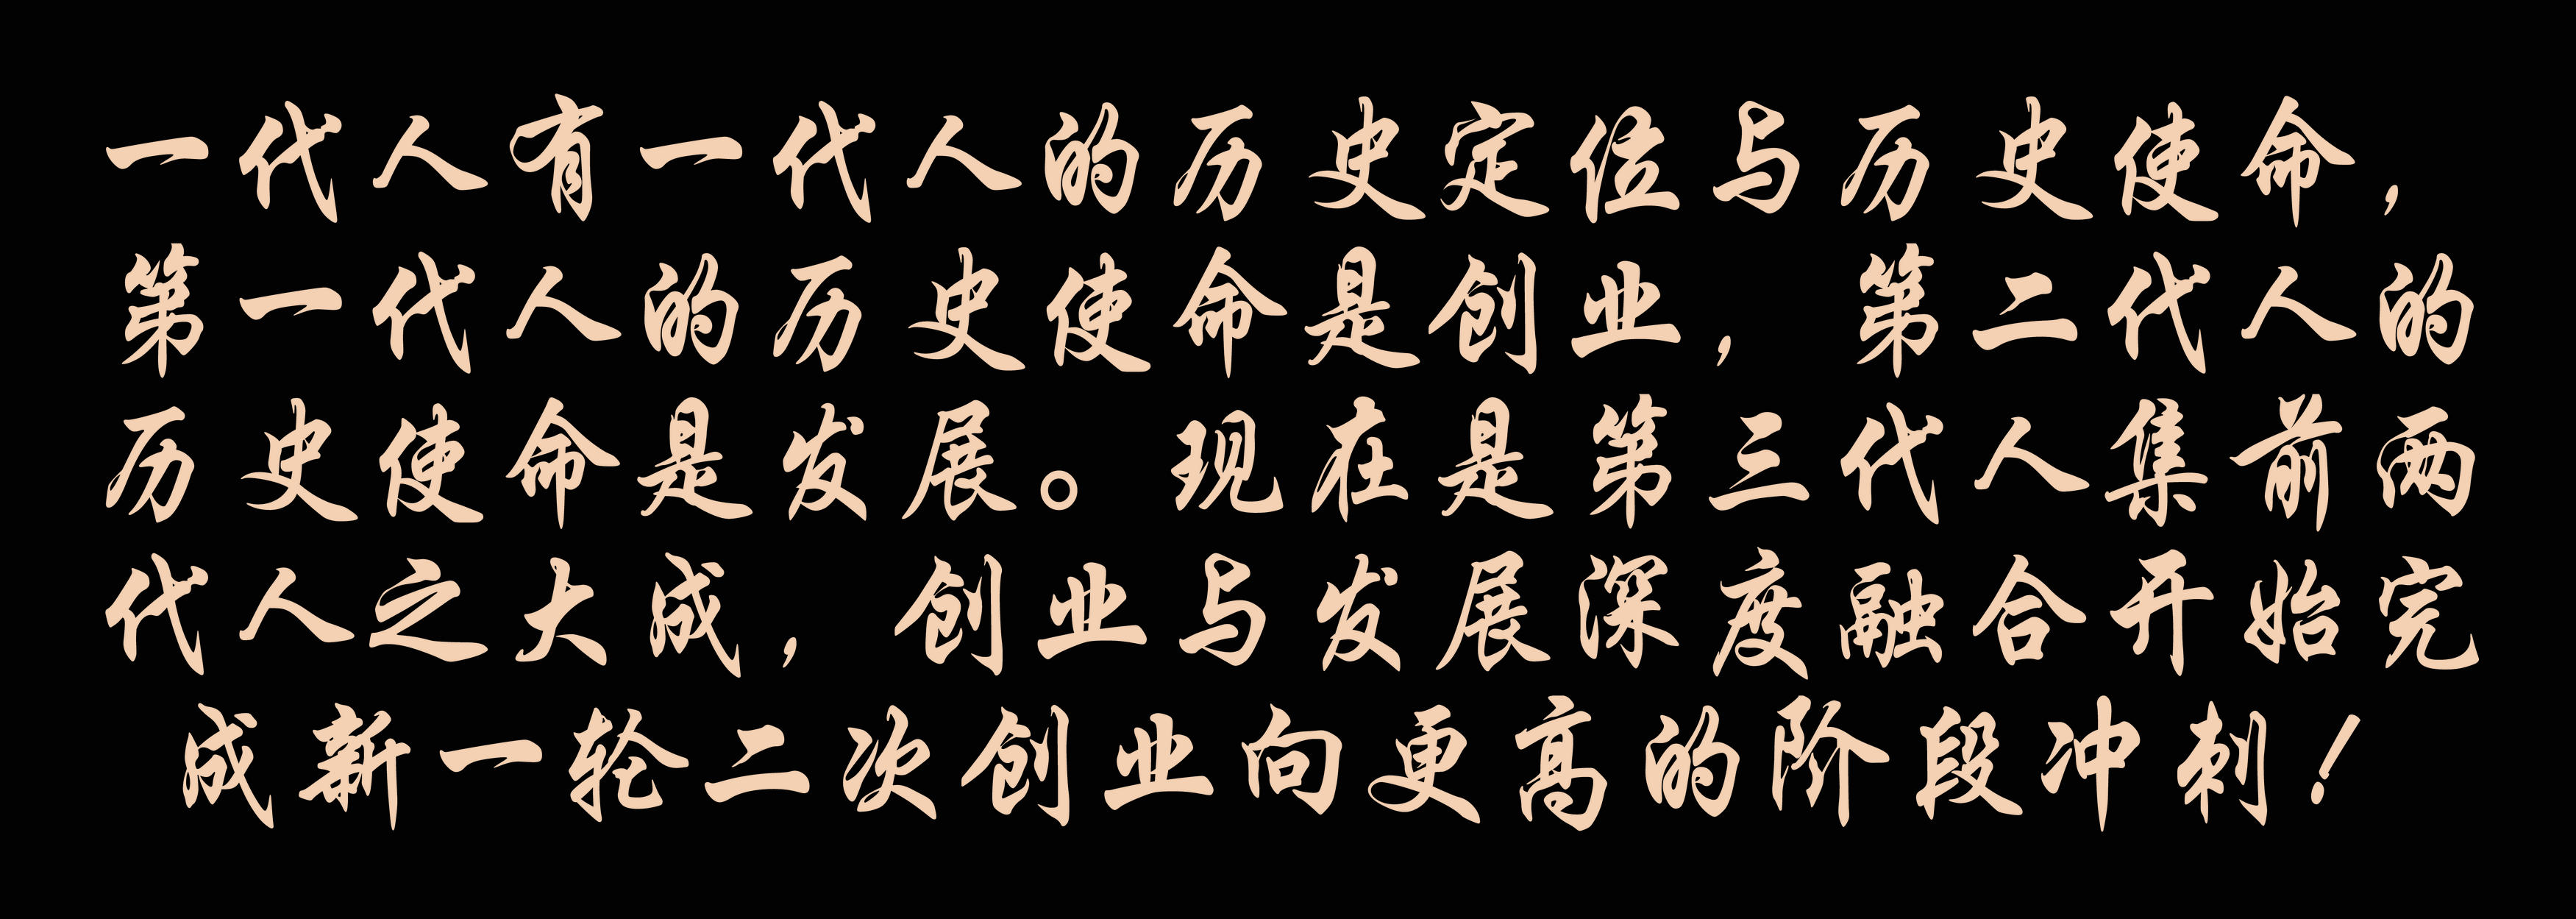 一代人有一代人的历史定位与历史使命，
第一代人的历史使命是创业，第二代人的
历史使命是发展。现在是第三代人集前两
代人之大成，创业与发展深度融合开始完
成新一轮二次创业向更高的阶段冲刺！